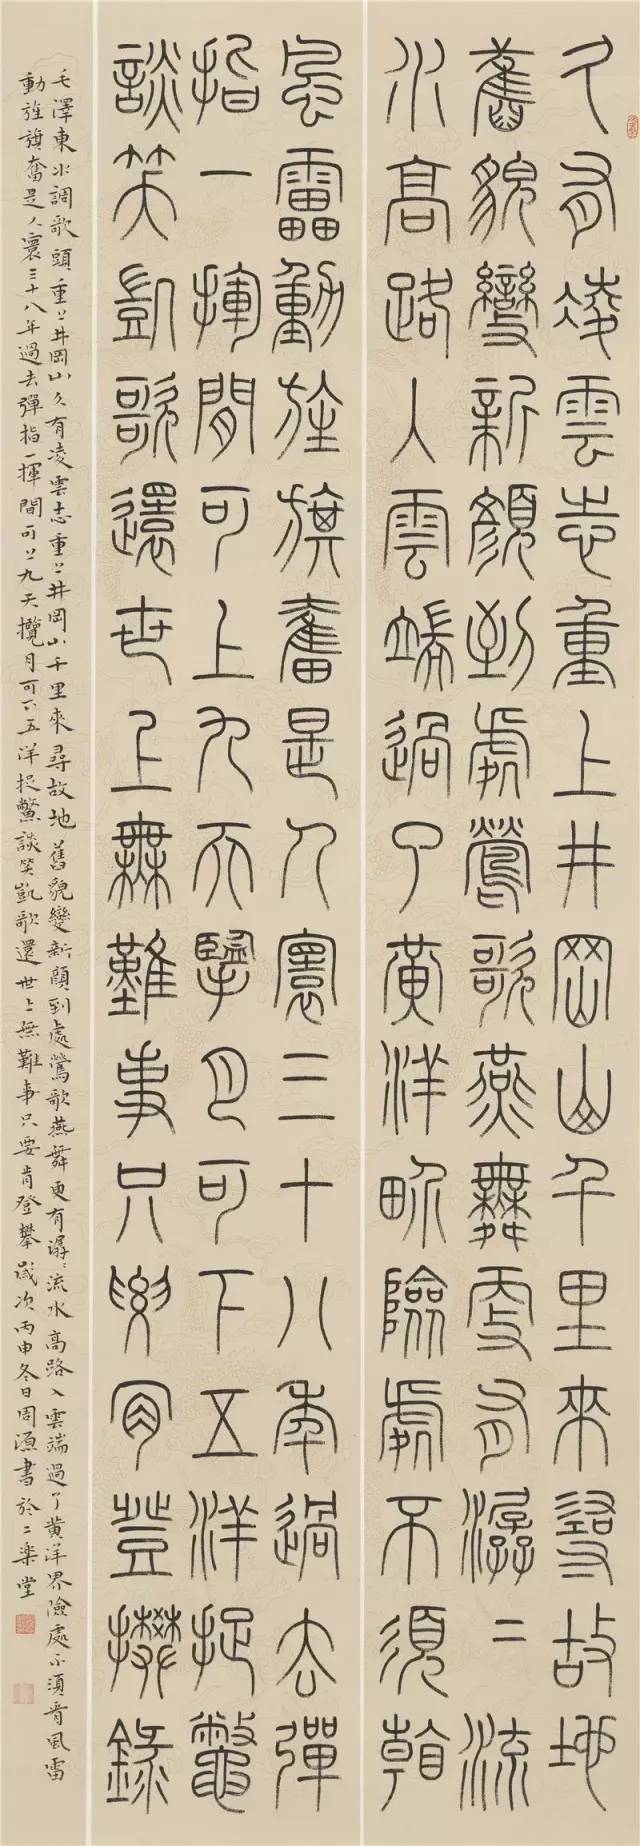 久有凌雲志重上井岡山千里來尋故地
舊貌變新顏到處鶯歌燕舞更有潺二流
水高路入雲端過了黃洋界險處不須看
風雷動旌旗奮是人寰三十八年過去彈
指一揮間可上九天攬月可下五洋捉鱉
談笑凱歌還世上無難事只要肯登攀錄
毛澤東水調歌頭重上井岡山久有凌雲志重上井岡山千里來尋故地舊貌變新顏到處鶯歌燕舞更有潺〻流水高路入雲端過了黃洋界險處不須看風雷
動旌旗奮是人寰三十八年過去彈指一揮間可上九天攬月可下五洋捉鱉談笑凱歌還世上無難事只要肯登攀歲次丙申冬日周書於二樂堂